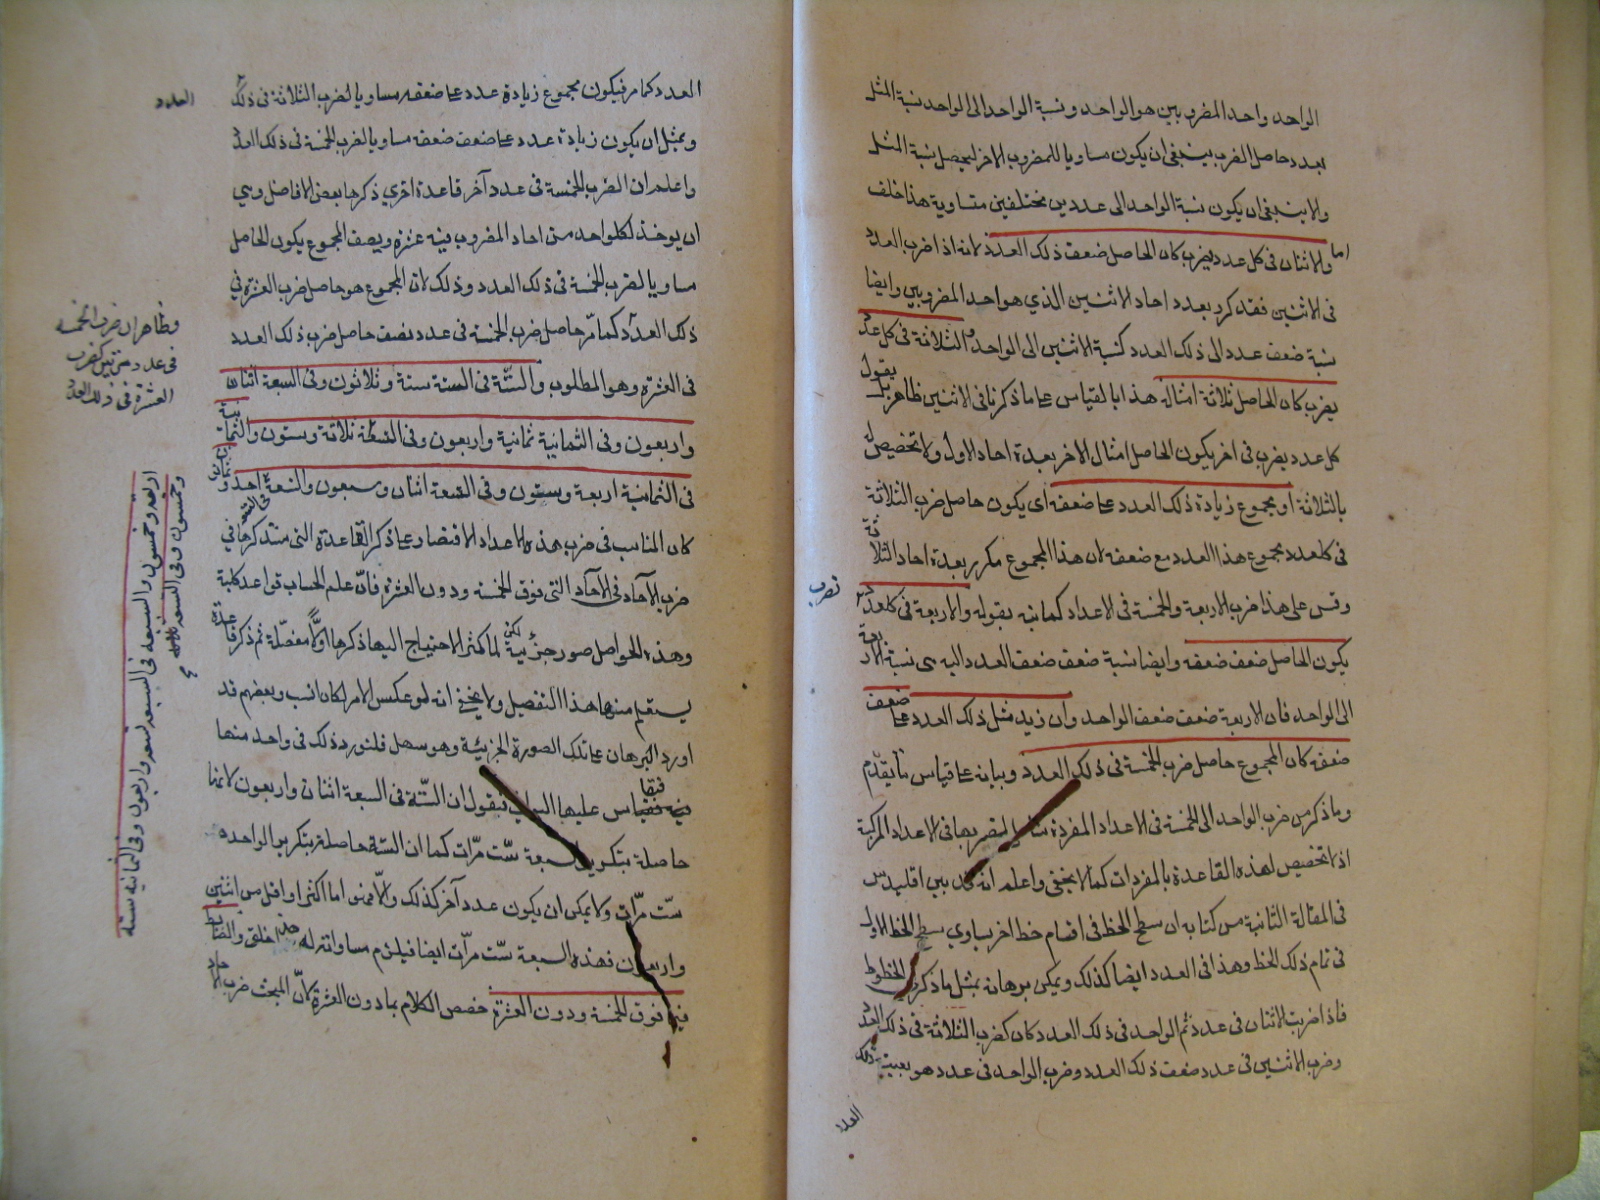 الواحد واحد المضروبين هو الواحد ونسبة الواحد الى الواحد نسبة المثل
بعدد حاصل الضرب ينبغى ان يكون مساويا للمضروب الاخر ليحصل نسبة المثل
والا ينبغى ان يكون نسبة الواحد الى عددين مختلفين متساوية هذا خلف
اما والاثنان فى كل عدد يضرب كان الحاصل ضعف ذلك العدد لانه اذا ضرب العدد
فى الاثنين فقد كرر بعدد احاد الاثنين الذي هو احد المضروبين وايضا
نسبة ضعف عدد الى ذلك العدد كنسبة الاثنين الى الواحد والثلاثة فى كل عدد
يضرب كان الحاصل ثلاثة امثاله هذا بالقياس على ما ذكرنا فى الاثنين ظاهر بل يقول
كل عدد يضرب فى اخر يكون الحاصل امثال الاخر بعدة احاد الاول ولا تخصيص له
بالثلاثة او مجموع زيادة ذلك العدد على ضعفه اى يكون حاصل ضرب الثلاثة
فى كل عدد مجموع هذا العدد مع ضعفه لان هذا المجموع مكرر بعدة احاد الثلاثة
وقس على هذا ضرب الاربعة والخمسة فى الاعداد كما نبه بقوله والاربعة فى كل عدد
يضرب
يكون الحاصل ضعف ضعفه وايضا نسبة ضعف ضعف العدد اليه هى نسبة الاربعة
الى الواحد فان الاربعة ضعف ضعف الواحد وان زيد مثل ذلك العدد على ضعف
ضعفه كان المجموع حاصل ضرب الخمسة فى ذلك العدد وبيانه على قياس ما تقدم
وما ذكر من ضرب الواحد الى الخمسة فى الاعداد المفردة لضربها فى الاعداد المركبة
اذ لا تخصيص لهذه القاعدة بالمفردات كما لا يخفى واعلم انه قد بين اقليدس
فى المقالة الثانية من كتابه ان سطح الخط فى اقسام خط اخر يساوي سطح الخط الاول
فى تمام ذلك الخط وهذا فى العدد ايضا كذلك ويمكن برهانه بمثل ما ذكر فى الخطوط
فاذا ضربت الاثنان فى عدد ثم الواحد فى ذلك العدد كان كضرب الثلاثة فى ذلك العدد
وضرب الاثنين فى عدد ضعف ذلك العدد وضرب الواحد فى عدد هو بعينه ذلك
العدد
العدد كما مر فيكون مجموع زيادة عدد على ضعفه مساويا لضرب الثلاثة فى ذلك
العدد
وبمثل ان يكون زيادة عدد على ضعف ضعفه مساويا لضرب الخمسة فى ذلك العدد
واعلم ان لضرب الخمسة فى عدد آخر قاعدة اخري ذكرها بعض الافاضل وهي
ان يوخذ لكل واحد من احاد المضروب فيه عشرة وينصف المجموع يكون الحاصل
مساويا لضرب الخمسة فى ذلك العدد وذلك لان المجموع هو حاصل ضرب العشرة في
ذلك العدد كما مر حاصل ضرب الخمسة فى عدد نصف حاصل ضرب ذلك العدد
وظاهر ان ضرب الخمسة
فى عدد مرتين كضرب
العشرة فى ذلك العدد
فى العشرة وهو المطلوب والستّة فى الستة ستة وثلاثون وفى السبعة اثنان
واربعون وفى الثمانية ثمانية واربعون وفى التسعة
فى الثمانية اربعة وستون وفى التسعة اثنان وسبعون والتسعة فى التسعة احد وثمانون
كان المناسب فى ضرب هذه الاعداد الاقتصار على ذكر القاعدة التى ستذكرها في
ضرب الآحاد فى الآحاد التى فوق الخمسة ودون العشرة فانّ علم الحساب قواعد كلية
وهذه الحواصل صور جزئية لكن لما كثر الاحتياج اليها ذكرها اولاً مفصّلة ثم ذكر قاعدة
يستعلم منها هذا التفصيل ولا يخفى انه لو عكس الامر لكان انسب وبعضهم قد
اورد البرهان على تلك الصورة الجزئية وهو سهل فلنورد ذلك فى واحد منها
عليها البواقى فنقول ان الستّة فى السبعة اثنان واربعون لانها
حاصلة بتكرير السبعة ستّ مرّات كما ان الستة حاصلة بتكرير الواحد
ستّ مرّات ولا يمكن ان يكون عدد آخر كذلك والّا فهو اما اكثر او اقل من اثنين
واربعون فهذه السبعة ستّ مرّات ايضا فيلزم مساواته له هذا خلف والضابط
فيما فوق الخمسة ودون العشرة خصص الكلام بما دون العشرة لانّ المبحث ضرب الاحاد
اربعة وخمسون والسبعة فى السبعة تسعة واربعون وفى الثمانية ستة
وخمسون وفى التسعة